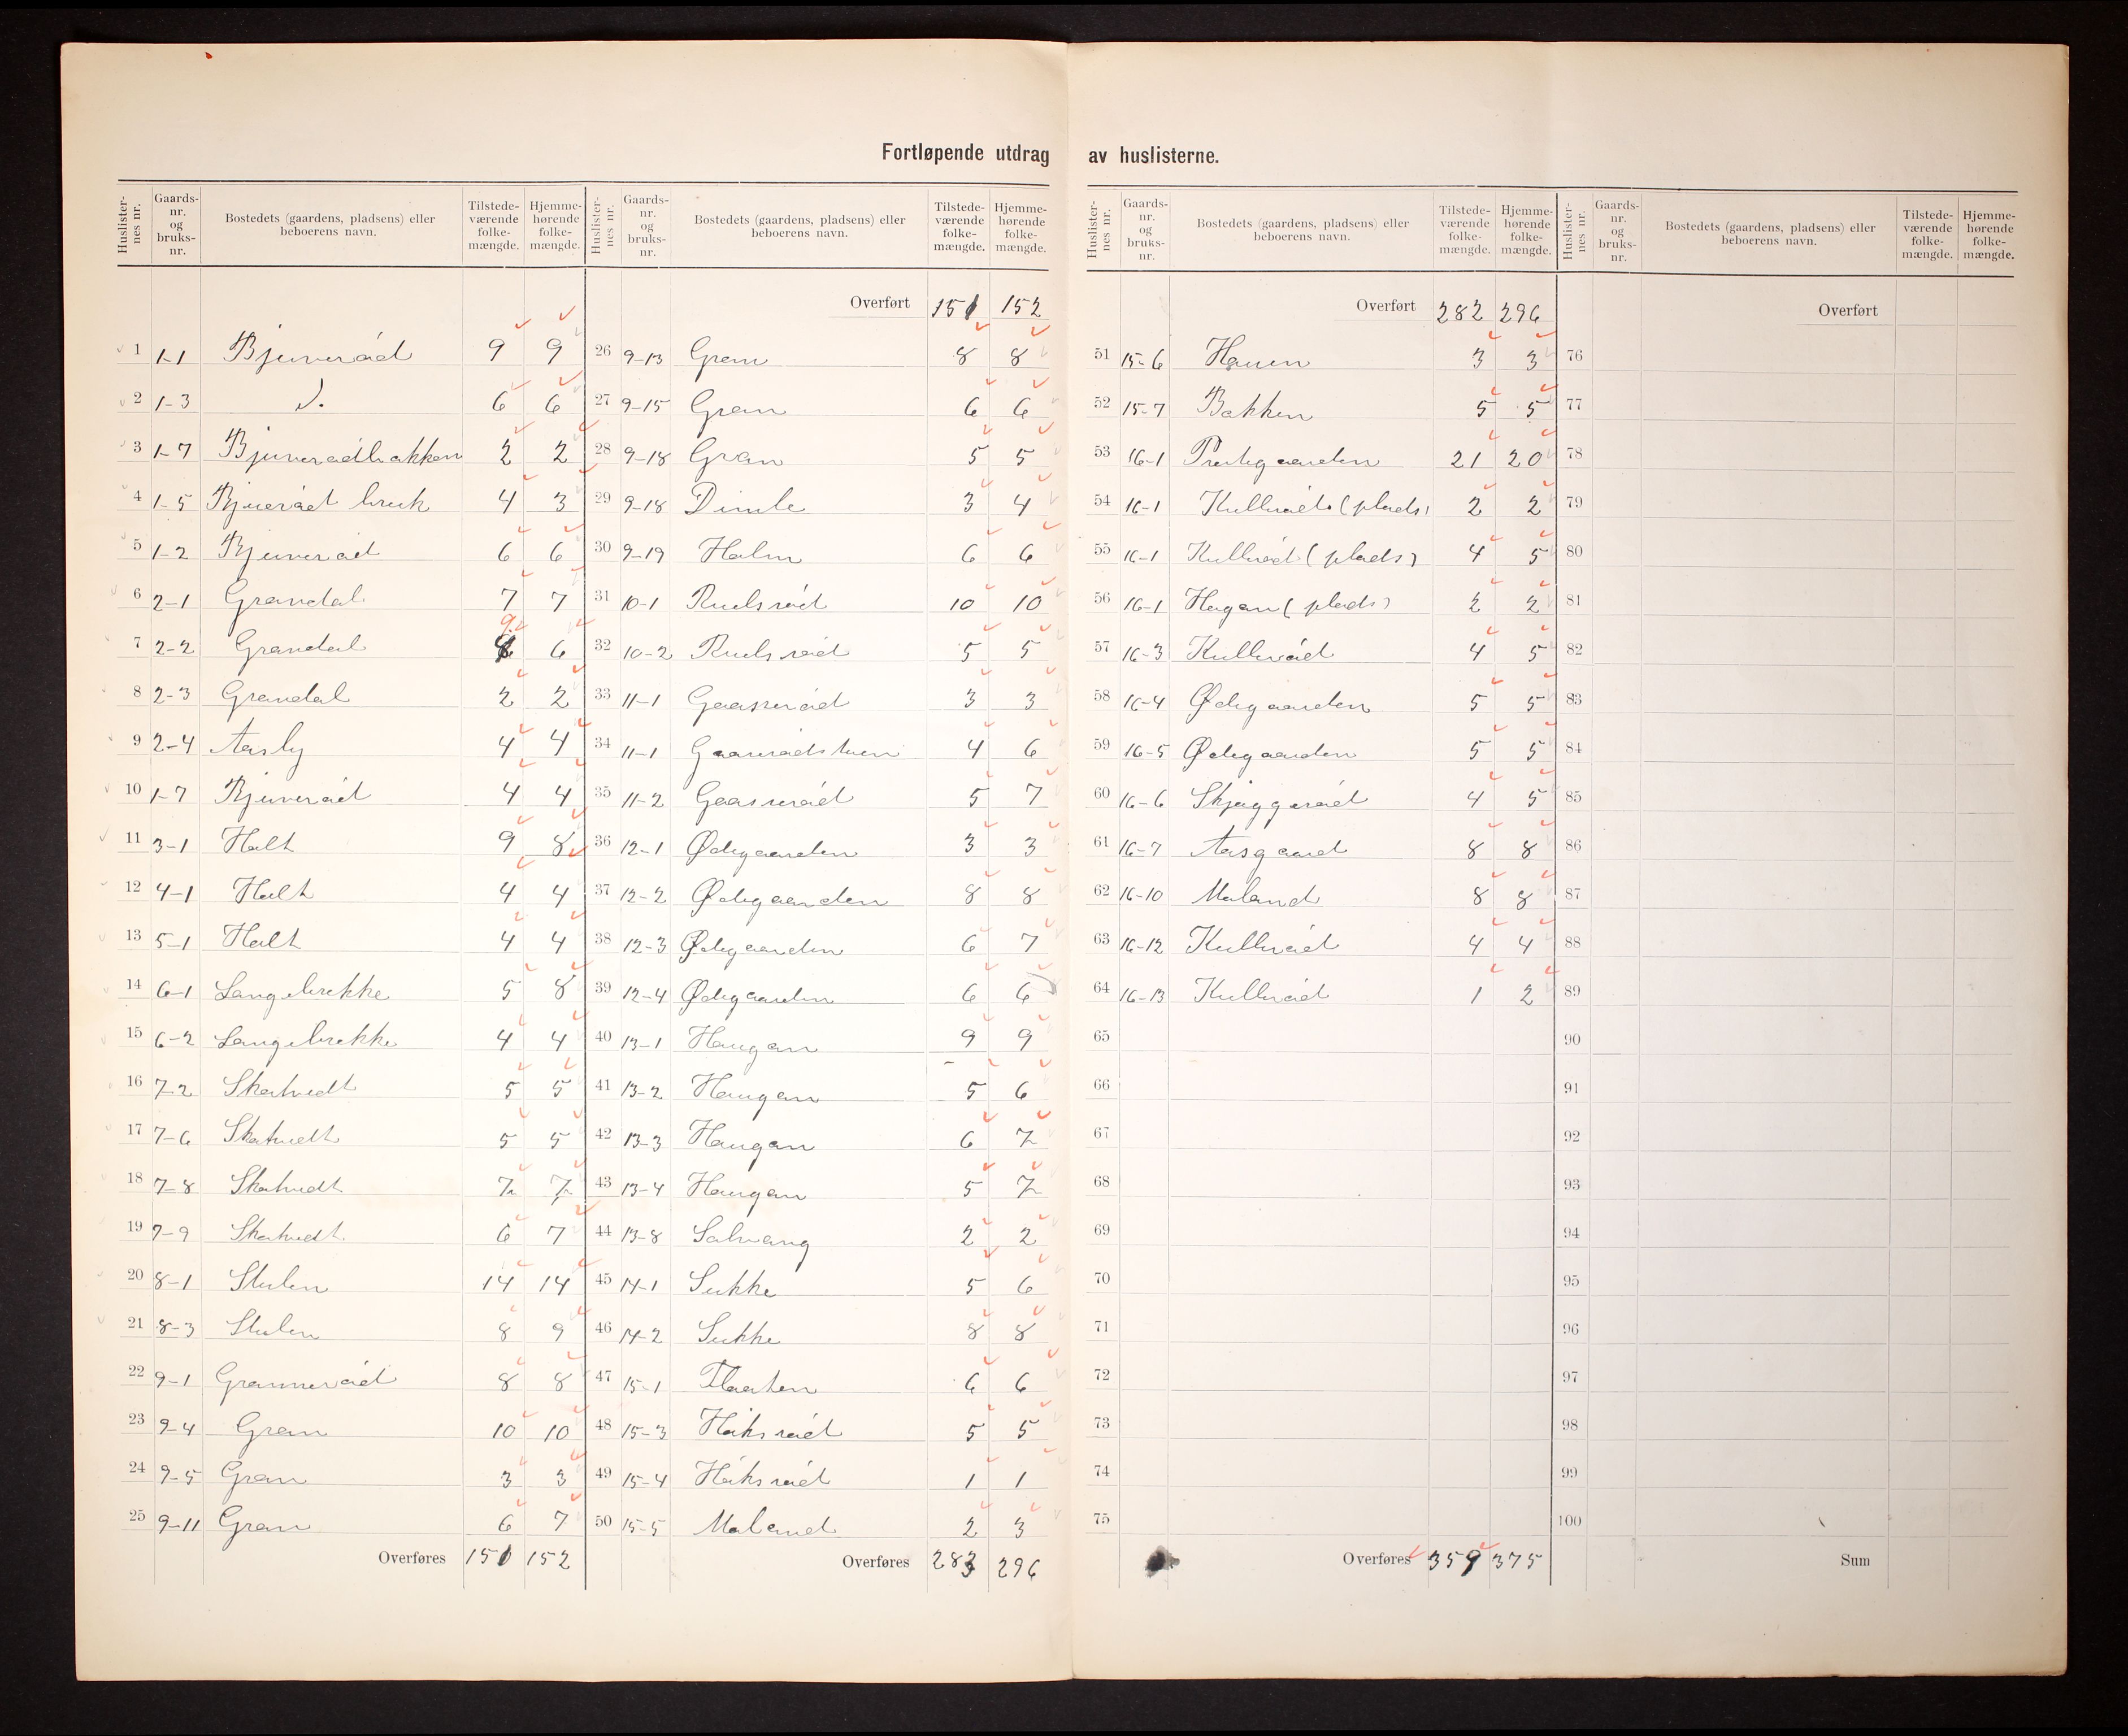 Fortløpende utdrag av huslisterne.
Huslisternes nr. Gaardsnr. og bruksnr. Bostedets (gaardens, pladsens) eller beboerens navn. Tilstedeværende folkemængde. Hjemmehørende folkemængde.
1 1-1 Bjuverød 9 9
2 1-3 D. 6 6
3 1-7 Bjuverødbakken 2 2
4 1-5 Bjuerød bruk 4 3
5 1-2 Bjuverød 6 6
6 2-1 Grandal 7 7
7 2-2 Grandal 9 6
8 2-3 Grandal 2 2
9 2-4 Aasly 4 4
10 1-7 Bjuverød 4 4
11 3-1 Holt 9 8
12 4-1 Holt 4 4
13 5-1 Holt 4 4
14 6-1 Langebrekke 5 8
15 6-2 Langebrekke 4 4
16 7-2 Skatvedt 5 5
17 7-6 Skatvedt 5 5
18 7-8 Skatvedt 7 7
19 7-9 Skatvedt 6 7
20 8-1 Stulen 14 14
21 8-3 Stulen 8 9
22 9-1 Grannerød 8 8
23 9-4 Gran 10 10
24 9-5 Gran 3 3
25 9-11 Gran 6 7
Overføres 151 152
Huslisternes nr. Gaardsnr. og bruksnr. Bostedets (gaardens, pladsens) eller beboerens navn. Tilstedeværende folkemængde. Hjemmehørende folkemængde.
Overført 151 152
26 9-13 Gran 8 8
27 9-15 Gran 6 6
28 9-18 Gran 5 5
29 9-18 Dimle 3 4
30 9-19 Holm 6 6
31 10-1 Ruelsrød 10 10
32 10-2 Ruelsrød 5 5
33 11-1 Gaasserød 3 3
34 11-1 4 6
35 11-2 Gaasserød 5 7
36 12-1 Ødegaarden 3 3
37 12-2 Ødegaarden 8 8
38 12-3 Ødegaarden 6 7
39 12-4 Ødegaarden 6 6
40 13-1 Haugan 9 9
41 13-2 Haugan 5 6
42 13-3 Haugan 6 7
43 13-4 Haugan 5 7
44 13-8 Solvang 2 2
45 14-1 Sukke 5 6
46 14-2 Sukke 8 8
47 15-1 Flaaten 6 6
48 15-3 Håksrød 5 5
49 15-4 Håksrød 1 1
50 15-5 Moland 2 3
Overføres 283 296
Huslisternes nr. Gaardsnr. og bruksnr. Bostedets (gaardens, pladsens) eller beboerens navn. Tilstedeværende folkemængde. Hjemmehørende folkemængde.
Overført 282 296
51 15-6 Hauen 3 3
52 15-7 Bakken 5 5
53 16-1 Prestegaarden 21 20
54 16-1 Kullerød (plads) 2 2
55 16-1 Kullerød (plads) 4 5
56 16-1 Hagan (plads) 2 2
57 16-3 Kullerød 4 5
58 16-4 Ødegaarden 5 5
59 16-5 Ødegaarden 5 5
60 16-6 Skjæggerød 4 5
61 16-7 Aasgaard 8 8
62 16-10 Moland 8 8
63 16-12 Kullerød 4 4
64 16-13 Kullerød 1 2
65
66
67
68
69
70
71
72
73
74
75
Overføres 359 375
Huslisternes nr. Gaardsnr. og bruksnr. Bostedets (gaardens, pladsens) eller beboerens navn. Tilstedeværende folkemængde. Hjemmehørende folkemængde.
Overført
76
77
78
79
80
81
82
83
84
85
86
87
88
89
90
91
92
93
94
95
96
97
98
99
100
Sum